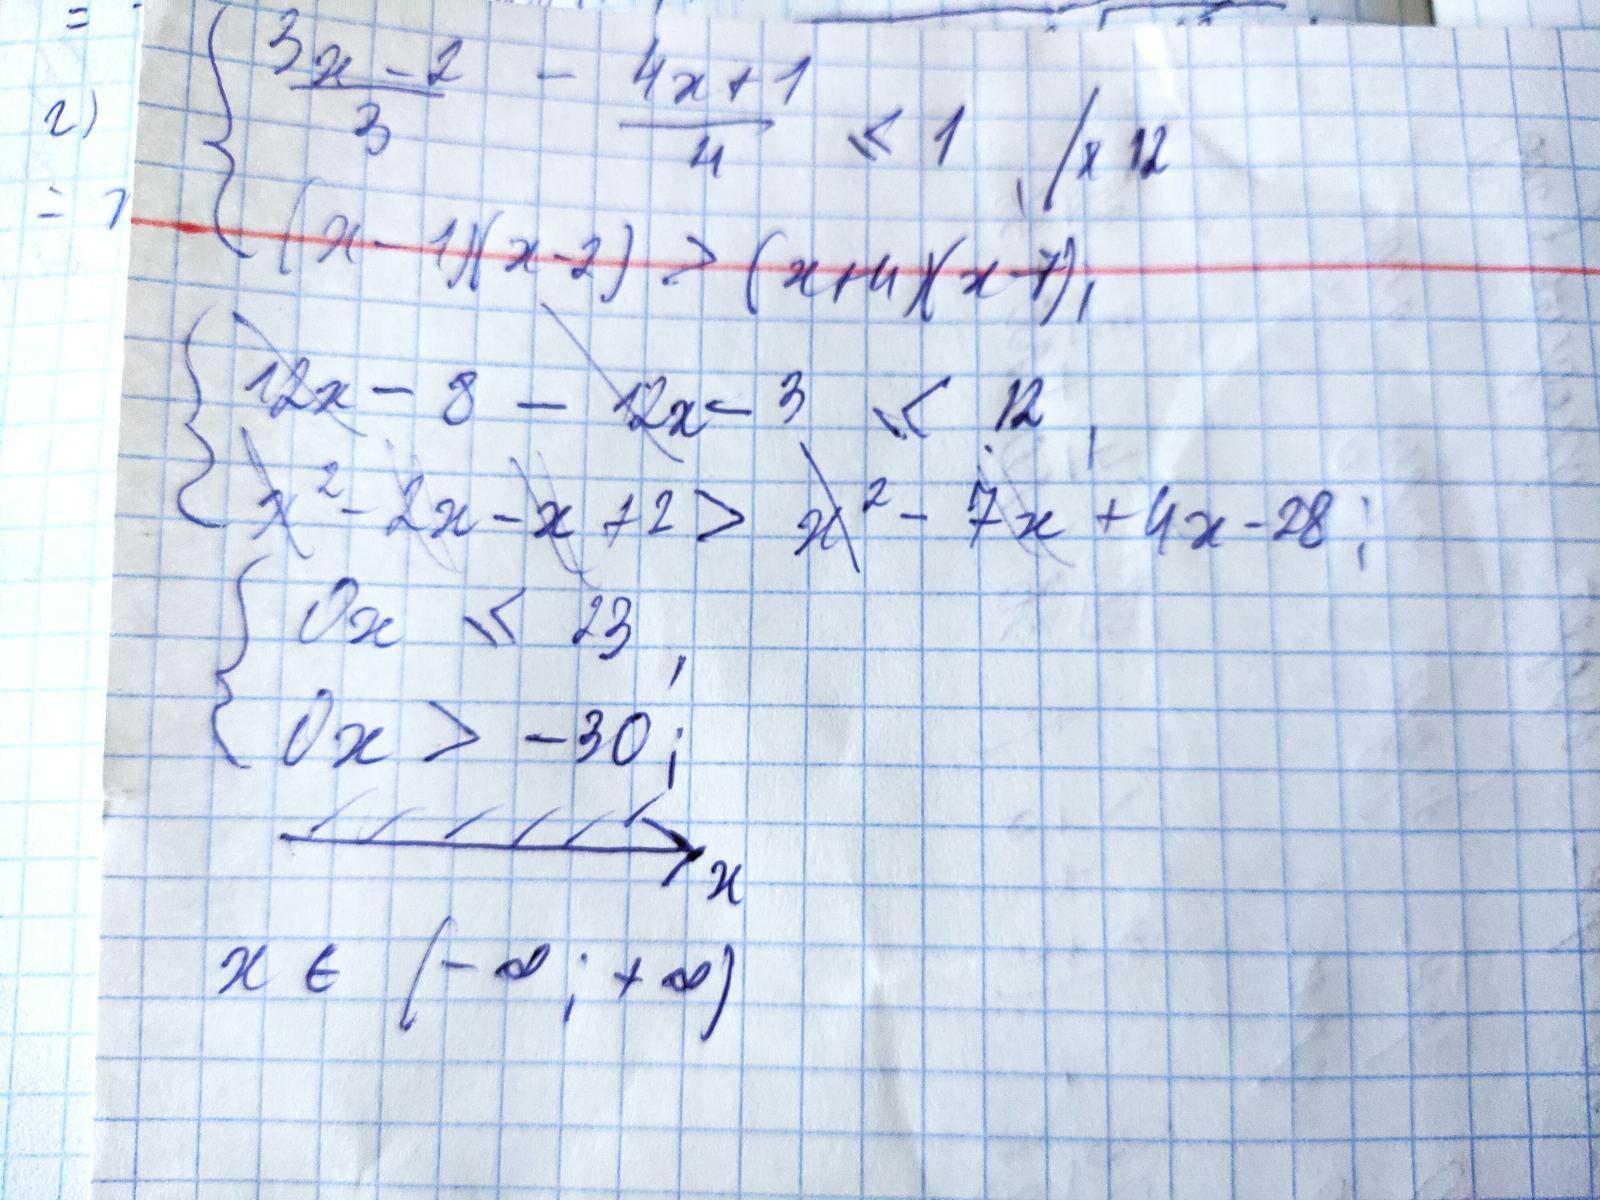 =
2)
= 7
{ (3x-2)/3 - (4x+1)/4 ≤ 1, /x 12
(x-1)(x-2) > (x+4)(x-7);
{ 12x - 8 - 12x - 3 ≤ 12,
x² - 2x - x + 2 > x² - 7x + 4x - 28;
{ 0x ≤ 23,
0x > -30;
x
x ∈ (-∞; +∞)